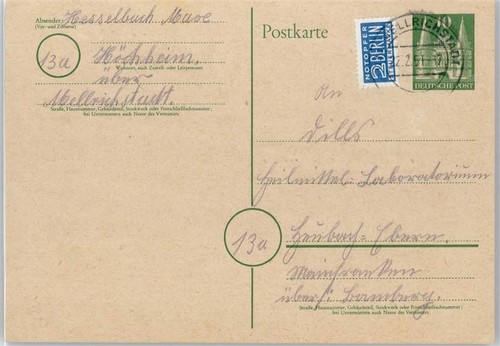 Absender:
Hesselbach Marie
(Vor- und Zuname)
13a
Höchheim,
Wohnort, auch Zustell- oder Leitpostamt
über
Mellrichstadt.
Straße, Hausnummer, Gebäudeteil, Stockwerk oder Postschließfachnummer;
bei Untermietern auch Name des Vermieters
Postkarte
NOTOPFER
2 BERLIN
STEUERMARKE
MELLRICHSTADT
10
DEUTSCHE POST
An
Dills
Heilmittel-Laboratorium
13a
Heubach-Ebern.
Mainfranken
über: Bamberg.
Straße, Hausnummer, Gebäudeteil, Stockwerk oder Postschließfachnummer;
bei Untermietern auch Name des Vermieters